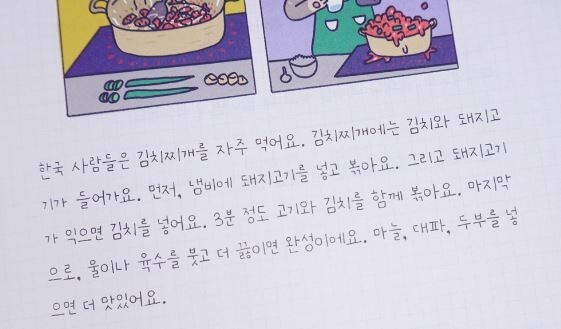 한국 사람들은 김치찌개를 자주 먹어요. 김치찌개에는 김치와 돼지고
기가 들어가요. 먼저, 냄비에 돼지고기를 넣고 볶아요. 그리고 돼지고기
가 익으면 김치를 넣어요. 3분 정도 고기와 김치를 함께 볶아요. 마지막
으로, 물이나 육수를 붓고 더 끓이면 완성이에요. 마늘, 대파, 두부를 넣
으면 더 맛있어요.